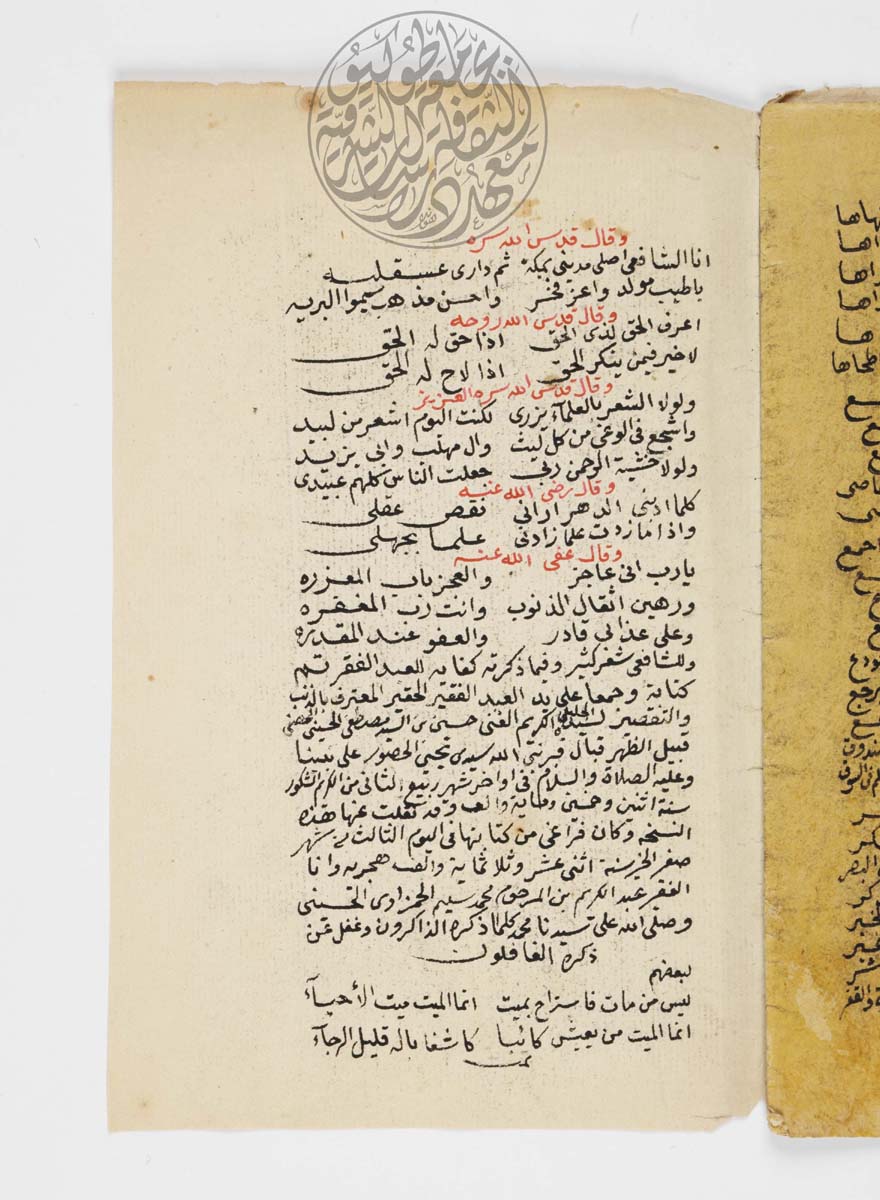 وقال قدس الله سره
انا الشافعي اصلي مدينتي بمكة ثم داري عسقليه
ياطيب مولد واعز فخر واحسن مذهب سيموا البريه
وقال قدس الله روحه
اعرف الحق لذى الحق اذا حق له الحق
لاخير فيمن ينكر الحق اذا لاح له الحق
وقال قدس الله سره العزيز
ولولا الشعر بالعلمآء يزرى لكنت اليوم اشعر من لبيد
واشجع فى الوغى من كل ليث وال مهلب وابى يزيد
ولولا خشية الرحمن ربي جعلت الناس كلهم عبيدى
وقال رضى الله عنه
كلما ادبني الدهر اراني نقص عقلى
واذا مازدت علما زادنى علما بجهلى
وقال عفى الله عنه
يارب انى عاجز والعجز باب المعزره
ورهين اثقال الذنوب وانت رب المغفره
وعلى عذابي قادر والعفو عند المقدره
وللشافعي شعر كثير وفيما ذكرته كفايه للعبد الفقير تم
كتابة وجمعا على يد العبد الفقير الحقير المعترف بالذنب
والتقصير لسيده الجليل الكريم الغنى حسين بن السيد مصطفى الحسيني الحصني
قبيل الظهر قبال قبر نبي الله سيدى يحيى الحصور على نبينا
وعليه الصلاة والسلام فى اواخر شهر ربيع الثانى من
سنة اثنين وخمسين ومايه والف وقد نقلت عنها هذه
النسخه وكان فراغي من كتابتها فى اليوم الثالث من شهر
صفر الخير سنة اثنى عشر وثلاثماية والف هجريه وانا
الفقير عبد الكريم بن المرحوم محمد سليم الحمزاوى الحسينى
وصلى الله على سيدنا محمد كلما ذكره الذاكرون وغفل عن
ذكره الغافلون
لبعضهم
ليس من مات فاستراح بميت انما الميت ميت الأحيآء
انما الميت من يعيش كائبا كاشفا باله قليل الرجآء
تمت